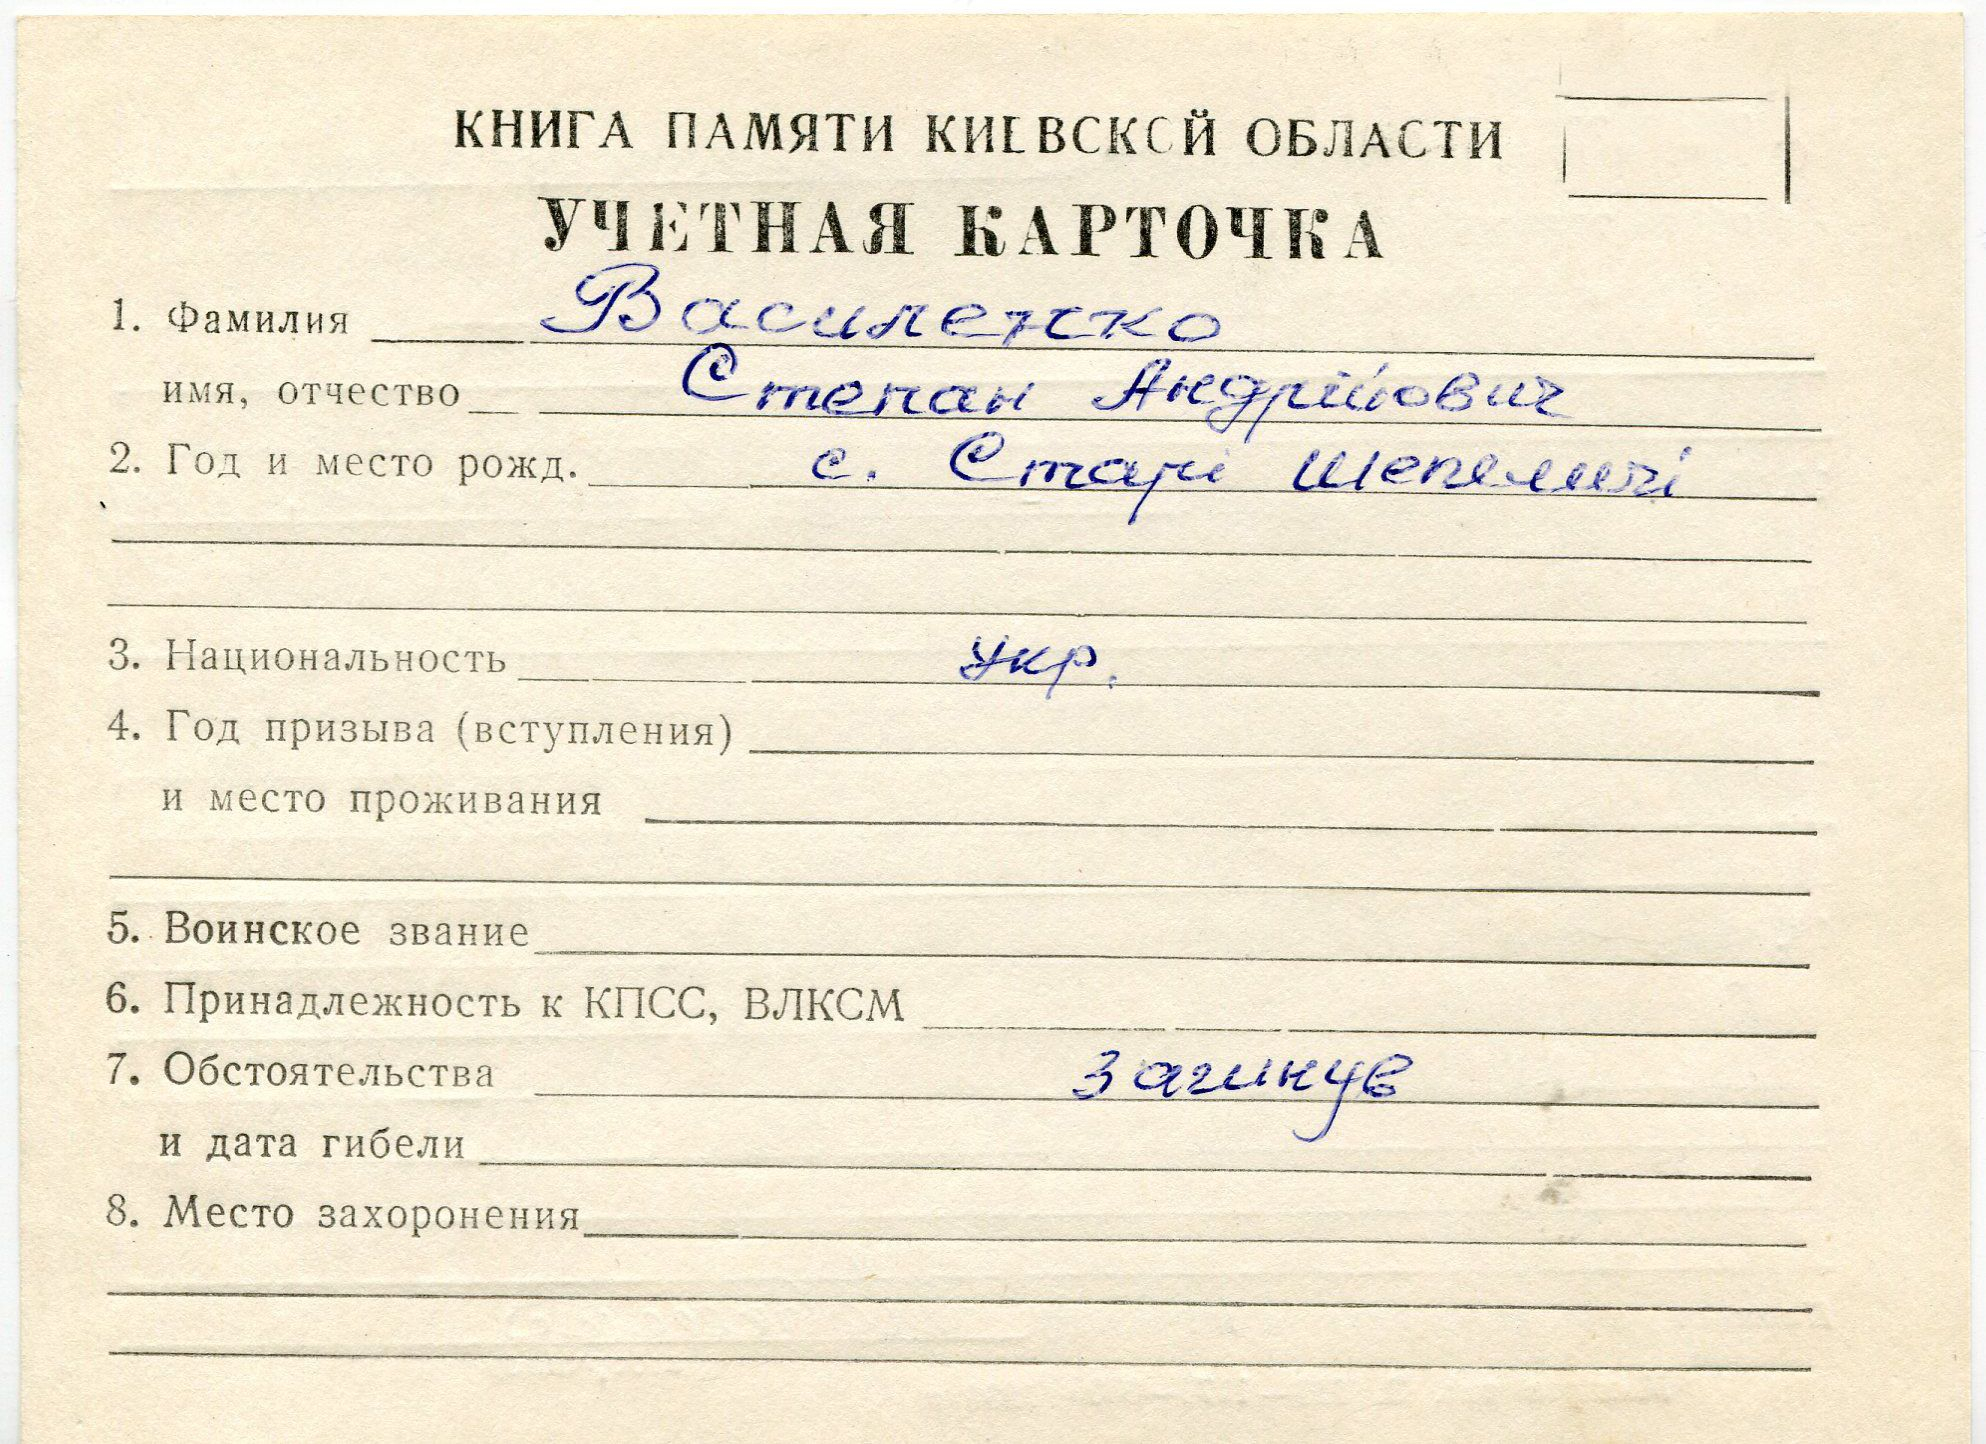 КНИГА ПАМЯТИ КИЕВСКОЙ ОБЛАСТИ
УЧЕТНАЯ КАРТОЧКА
1. Фамилия Василенко
имя, отчество Степан Андрійович
2. Год и место рожд. с. Старі Шепеличі
3. Национальность укр.
4. Год призыва (вступления)
и место проживания
5. Воинское звание
6. Принадлежность к КПСС, ВЛКСМ
7. Обстоятельства загинув
и дата гибели
8. Место захоронения